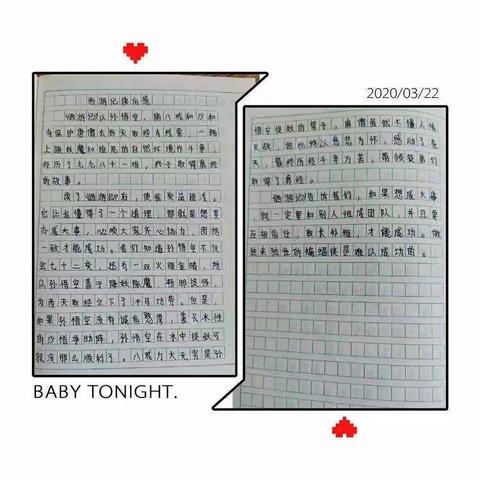 西游记读后感
《西游记》以孙悟空、猪八戒和沙和
尚保护唐僧去西天取经为线索，一路
上跟妖魔和险恶的自然环境作斗争，
经历了九九八十一难，终于取得真经
的故事。
读了《西游记》后，使我受益匪浅。
它让我懂得了一个道理，那就是想要
办成大事，必须大家齐心协力，团结
一致才能成功。我们知道孙悟空不仅
会七十二变，还有一双火眼金睛，所
以孙悟空善于降妖除魔，捉邪捉怪，
为西天取经立下了汗马功劳。但是，
如果孙悟空没有诚恳憨厚，善长水性
的沙悟净助阵，孙悟空在水中捉妖可
就没那么顺利了。八戒力大无穷是孙
悟空捉妖的帮手，唐僧虽然不懂人情
世故，但他始终以慈悲为怀，感动了上
天，最终历经千辛万苦，带领徒弟们
取得了真经。
《西游记》告诉我们，如果想成大事
，就一定要和别人组成团队，并且要
互相信任，取长补短，才能成功。做
独来独往的蝙蝠侠是难以成功的。
2020/03/22
BABY TONIGHT.